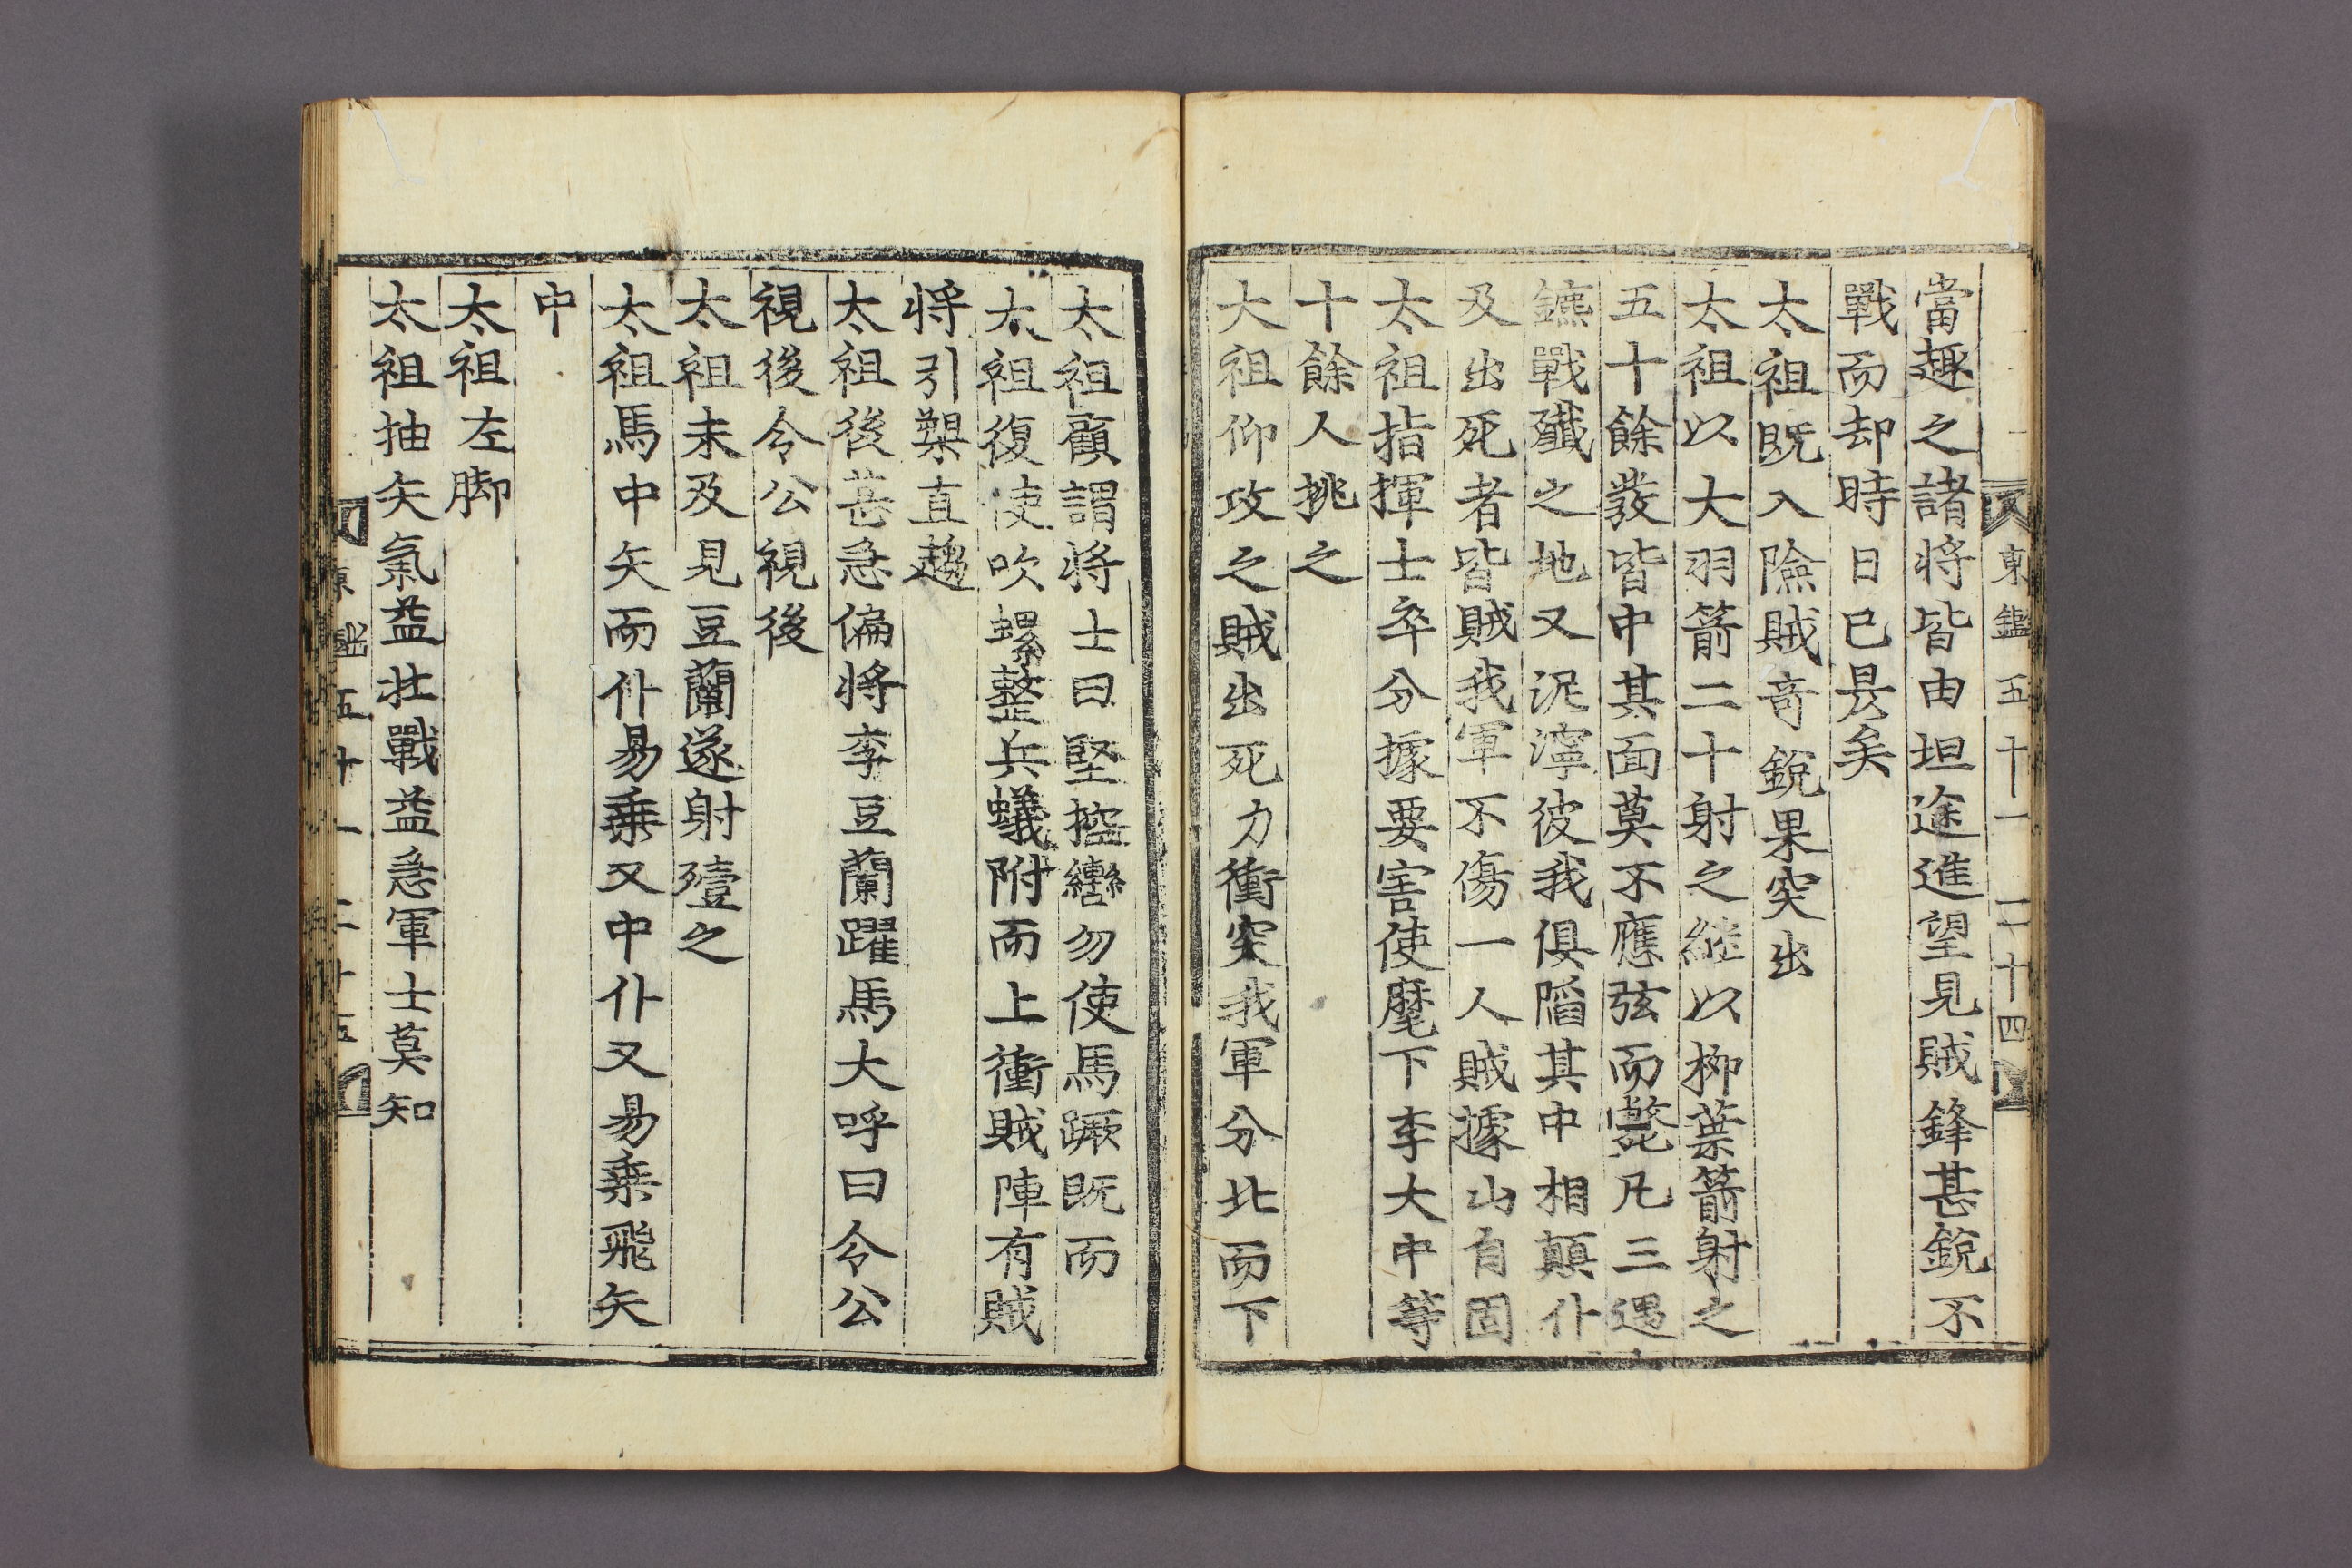 東鑑五十一 二十四
當趣之諸將皆由坦途進望見賊鋒甚銳不
戰而却時日已昃矣
太祖既入險賊竒銳果突出
太祖以大羽箭二十射之継以柳葉箭射之
五十餘發皆中其面莫不應弦而斃凡三遇
鏖戰殲之地又泥濘彼我俱陷其中相顛仆
及出死者皆賊我軍不傷一人賊據山自固
太祖指揮士卒分據要害使麾下李大中等
十餘人挑之
太祖仰攻之賊出死力衝突我軍分北而下
太祖顧謂將士曰堅控轡勿使馬蹶既而
太祖復使吹螺整兵蟻附而上衝賊陣有賊
將引槊直趨
太祖後甚急偏將李豆蘭躍馬大呼曰令公
視後令公視後
太祖未及見豆蘭遂射殪之
太祖馬中矢而仆易乗又中仆又易乗飛矢
中
太祖左脚
太祖抽矢氣益壯戰益急軍士莫知
東鑑五十一 二十五